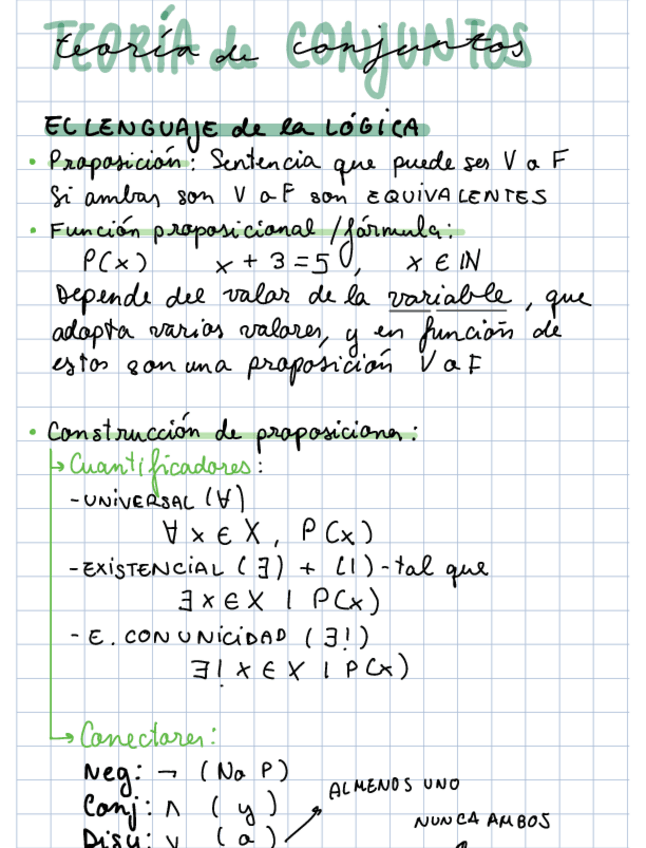 teoría de conjuntos
EL LENGUAJE de la LÓGICA
• Proposición: Sentencia que puede ser V o F
Si ambas son V o F son EQUIVALENTES
• Función proposicional / fórmula:
P(x) x + 3 = 5, x ∈ ℕ
Depende del valor de la variable, que
adopta varios valores, y en función de
estos son una proposición V o F
• Construcción de proposiciones:
↳ Cuantificadores:
- UNIVERSAL (∀)
∀ x ∈ X, P(x)
- EXISTENCIAL (∃) + (|) - tal que
∃ x ∈ X | P(x)
- E. CON UNICIDAD (∃!)
∃! x ∈ X | P(x)
↳ Conectores:
Neg: ¬ (No P)
ALMENOS UNO
Conj: ∧ (y)
NUNCA AMBOS
Disy: ∨ (o)